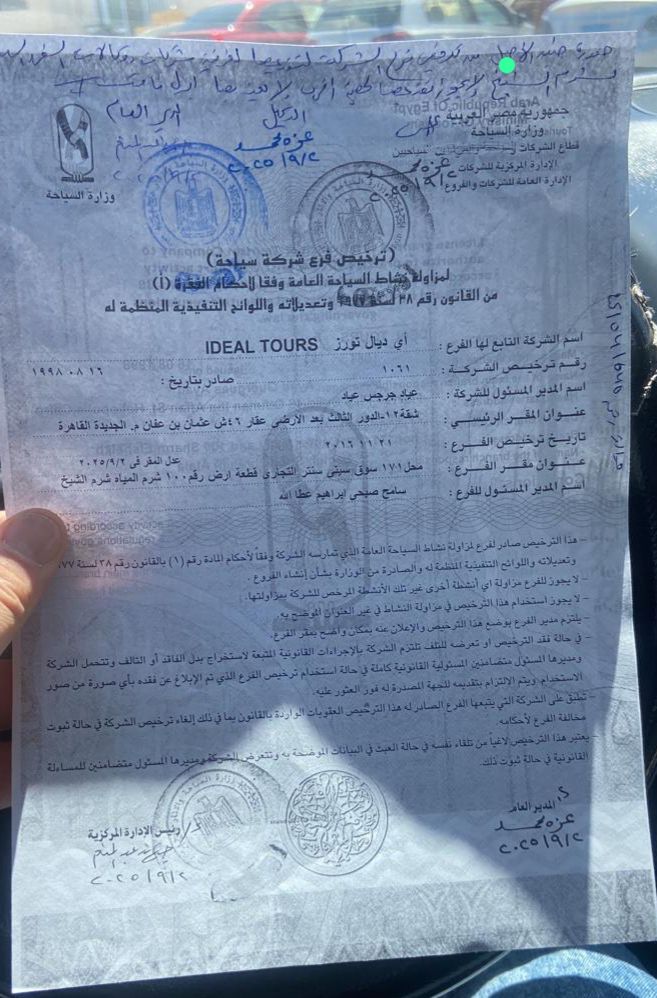 جمهورية مصر العربية
وزارة السياحة
الإدارة المركزية للشركات
الإدارة العامة للشركات والفروع
وزارة السياحة
(ترخيص فرع شركة سياحة)
لمزاولة نشاط السياحة العامة وفقا لاحكام الفقرة (أ)
من القانون رقم ٣٨ لسنة ١٩٧٧ وتعديلاته واللوائح التنفيذية المنظمة له
اسم الشركة التابع لها الفرع : أي ديال تورز IDEAL TOURS
رقم ترخيص الشركة : ١٠٦١ صادر بتاريخ : ١٩٩٨.٠٨.١٦
اسم المدير المسئول للشركة : عياد جرجس عياد
عنوان المقر الرئيسي : شقة١٢-الدور الثالث بعد الأرضي عقار ٤٦ش عثمان بن عفان م. الجديدة القاهرة
تاريخ ترخيص الفرع : ٢٠١٦.١١.٢١ عدل المقر فى ٢٠٢٥/٩/٢
عنوان مقر الفرع : محل١٧١ سوق سيتى سنتر التجارى قطعة ارض رقم١٠٠ شرم المياه شرم الشيخ
اسم المدير المسئول للفرع : سامح صبحي ابراهيم عطا الله
– هذا الترخيص صادر لفرع لمزاولة نشاط السياحة العامة الذي تمارسه الشركة وفقاً لأحكام المادة رقم (١) بالقانون رقم ٣٨ لسنة ٧٧
وتعديلاته واللوائح التنفيذية المنظمة له والصادرة من الوزارة بشأن إنشاء الفروع
– لا يجوز للفرع مزاولة اي أنشطة أخرى غير تلك الأنشطة المرخص للشركة بمزاولتها.
– لا يجوز استخدام هذا الترخيص في مزاولة النشاط في غير العنوان الموضح به.
– يلتزم مدير الفرع بوضع هذا الترخيص والإعلان عنه بمكان واضح بمقر الفرع.
– في حالة فقد الترخيص أو تعرضه للتلف تلتزم الشركة بالإجراءات القانونية المتبعة لاستخراج بدل الفاقد أو التالف وتتحمل الشركة
ومديرها المسئول متضامنين المسئولية القانونية كاملة في حالة استخدام ترخيص الفرع الذي تم الإبلاغ عن فقده بأي صورة من صور
الاستخدام. ويتم الالتزام بتقديمه للجهة المصدرة له فور العثور عليه.
– تطبق على الشركة التي يتبعها الفرع الصادر له هذا الترخيص العقوبات الواردة بالقانون بما في ذلك إلغاء ترخيص الشركة في حالة ثبوت
مخالفة الفرع لأحكامه.
– يعتبر هذا الترخيص لاغيا من تلقاء نفسه في حالة العبث في البيانات الموضحة به وتتعرض الشركة ومديرها المسئول متضامنين للمساءلة
القانونية في حالة ثبوت ذلك.
المدير العام
عزه محمد
٢٠٢٥/٩/٢
رئيس الإدارة المركزية
٢٠٢٥/٩/٢